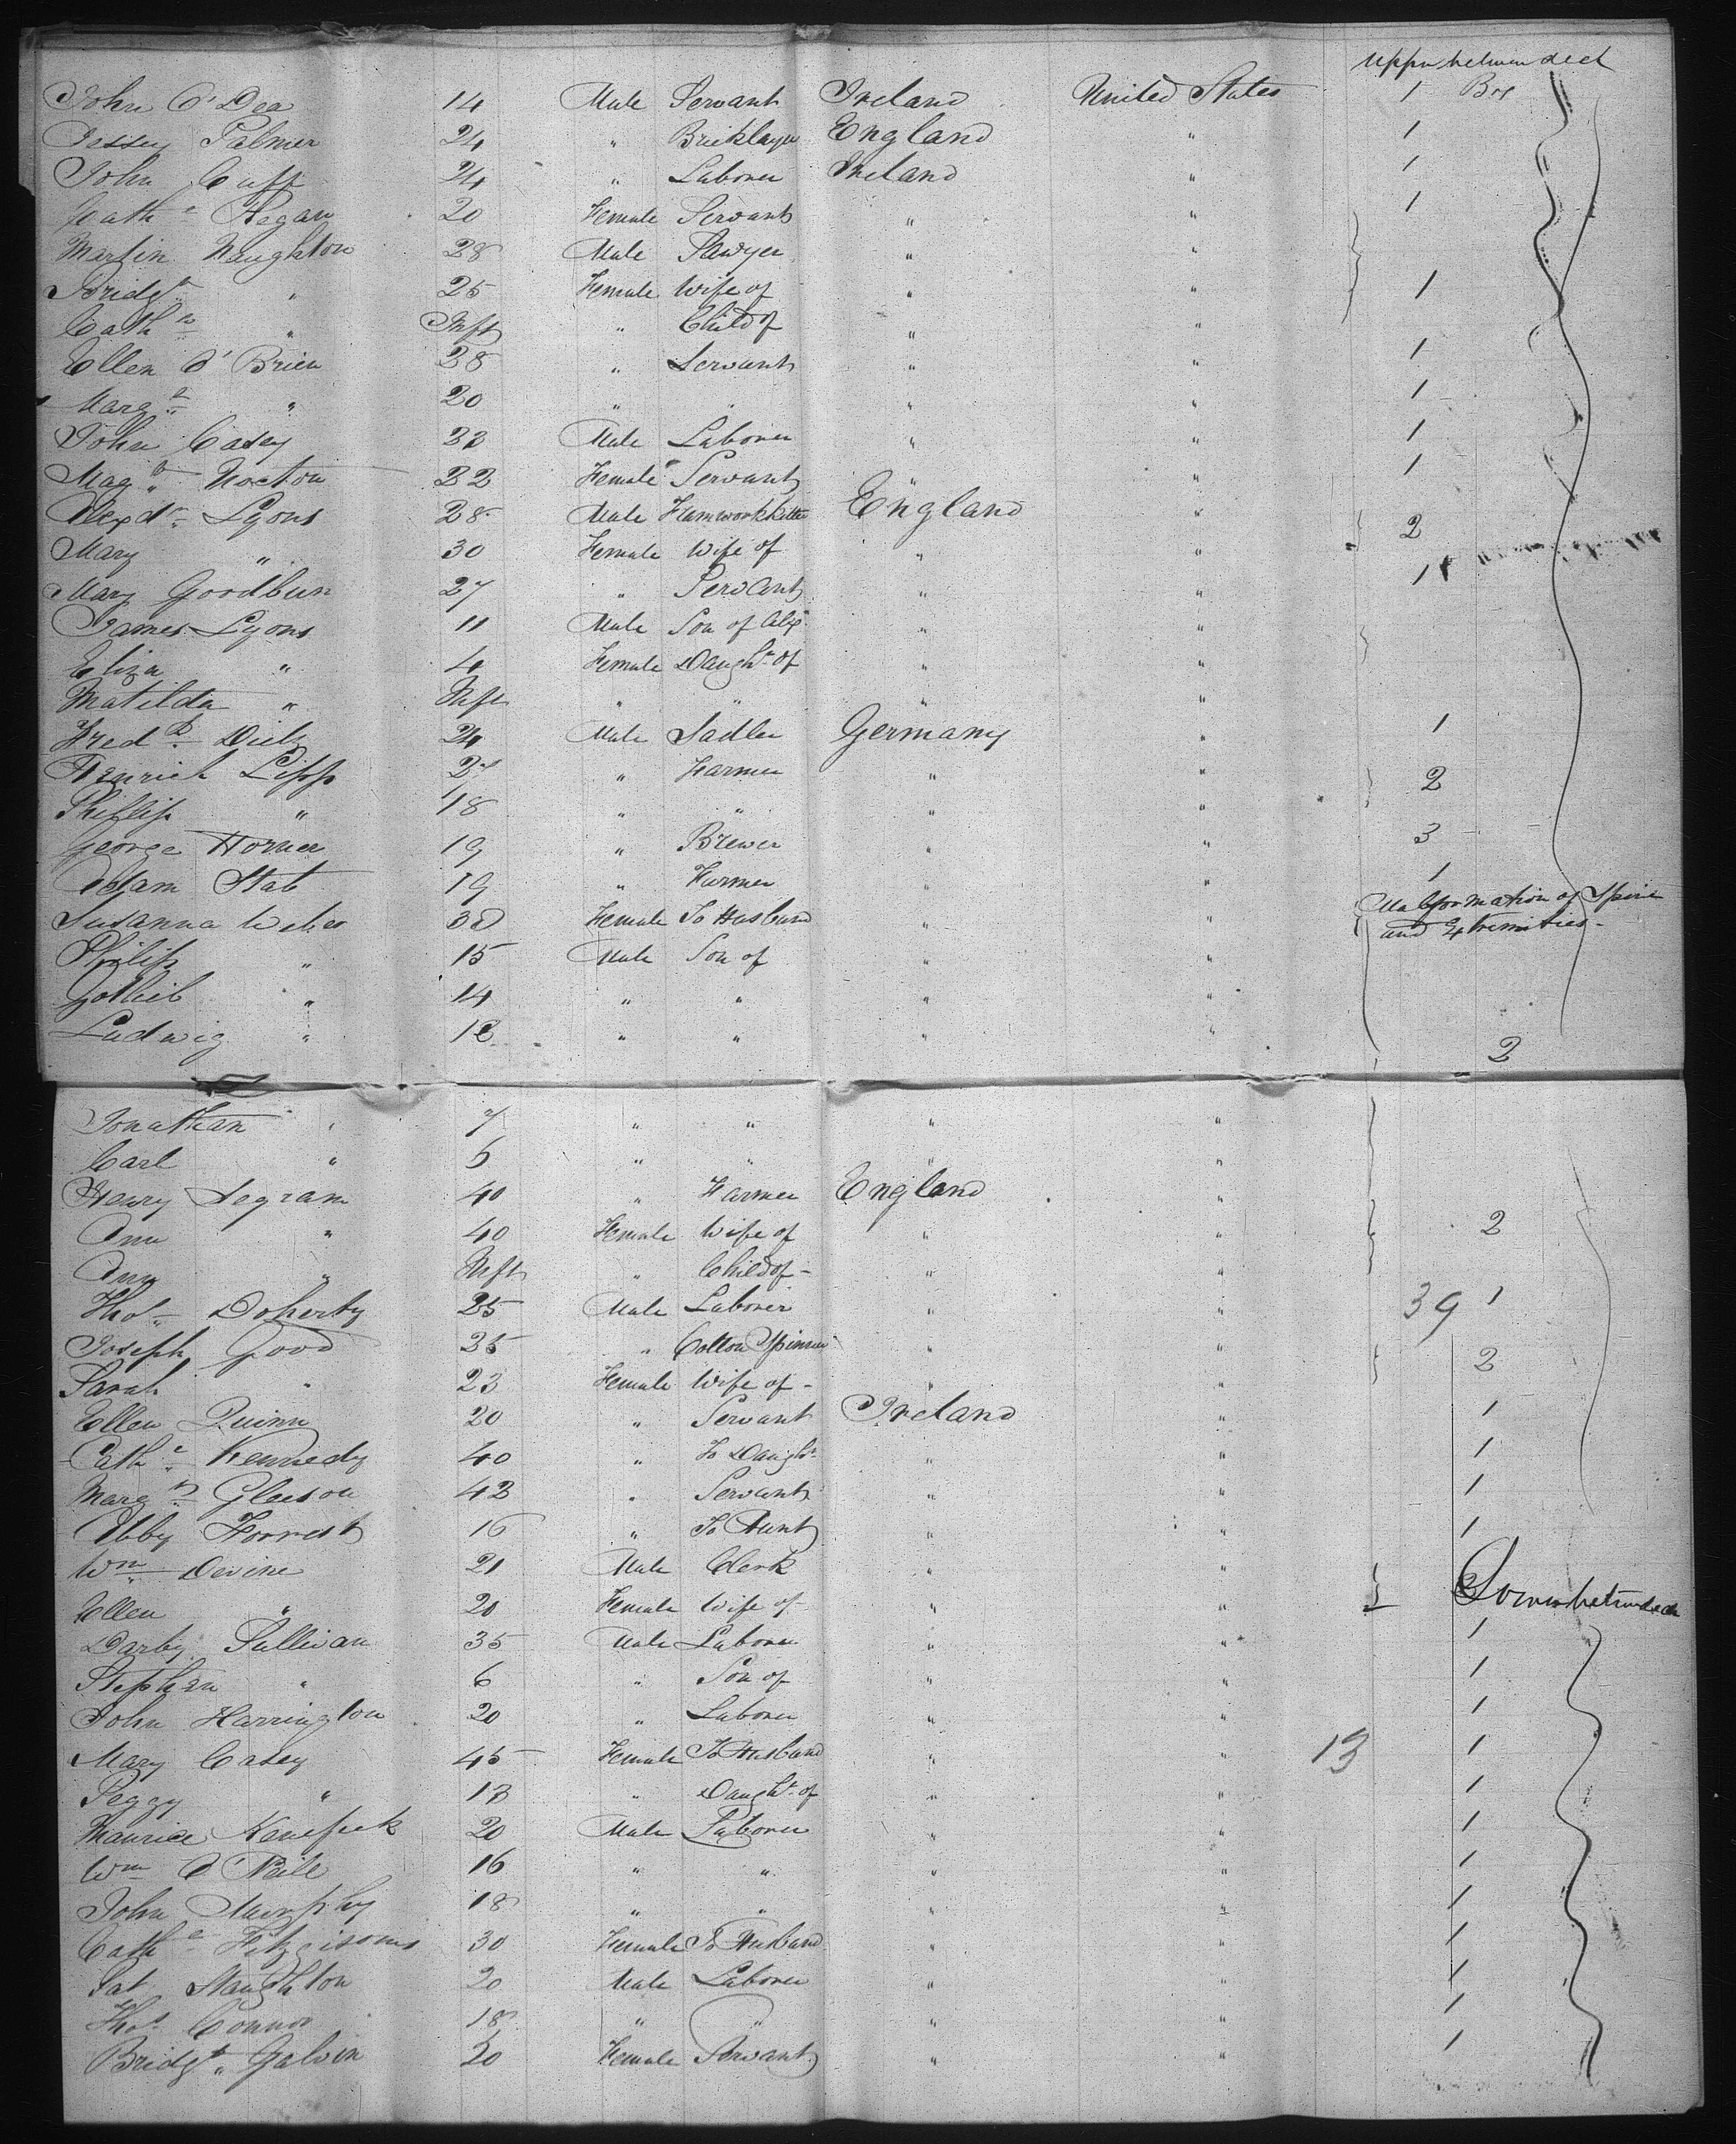 Upper between deck
John O'Dea 14 Male Servant Ireland United States 1 Box
Jessey Palmer 24 " Bricklayer England " 1
John Cuff 24 " Laborer Ireland " 1
Cathe Hegan 20 Female Servant " " 1
Martin Naughton 28 Male Sawyer " "
Bridgt " 25 Female Wife of " " 1
Cathe " Inft " Child of " "
Ellen O'Brien 28 " Servant " " 1
Margt " 20 " " " " 1
John Casey 23 Male Laborer " " 1
Magt Nocton 22 Female Servant " " 1
Alexdr Lyons 28 Male England " 2
Mary " 30 Female Wife of " "
Mary Goodbun 27 " Servant " " 1
James Lyons 11 Male Son of Alex " "
Eliza " 4 Female Daught of " "
Matilda " Inft " " " "
Fredk Diel 24 Male Sadler Germany " 1
Henrich Lipp 27 " Farmer " " 2
Phillip " 18 " " " "
George Horner 19 " Brewer " " 3
Adam Stab 19 " Farmer " " 1
Susanna Weber 38 Female To Husband " " Malformation of Spine
and Extremities -
Philip " 15 Male Son of " "
Gotleib " 14 " " " "
Ludwig " 12 " " " " 2
Jonathan " 7 " " " "
Carl " 5 " " " "
Henry Segram 40 " Farmer England "
Ann " 40 Female Wife of " " 2
Ann " Inft " Child of - " "
Thos Doherty 25 Male Laborer " " 39 1
Joseph Good 35 " Cotton Spinner " " 2
Sarah " 23 Female Wife of - " "
Ellen Quinn 20 " Servant Ireland " 1
Cathe Kennedy 40 " To Daught " " 1
Margt Gleeson 42 " Servant " " 1
Abby Forrest 16 " To Aunt " " 1
Wm Devine 21 Male Clerk " "
Ellen " 20 Female Wife of " " Lower between deck
Darby Sullivan 35 Male Laborer " " 1
Stephen " 6 " Son of " " 1
John Harrington 20 " Laborer " " 1
Mary Casey 45 Female To Husband " " 13 1
Peggy " 13 " Daught of " " 1
Maurice Kenefick 20 Male Laborer " " 1
Wm O'Neile 16 " " " " 1
John Murphy 18 " " " " 1
Cathe Fitzgisoms 30 Female To Husband " " 1
Pat Naughton 20 Male Laborer " " 1
Thos Connor 18 " " " " 1
Bridgt Galvin 20 Female Servant " " 1